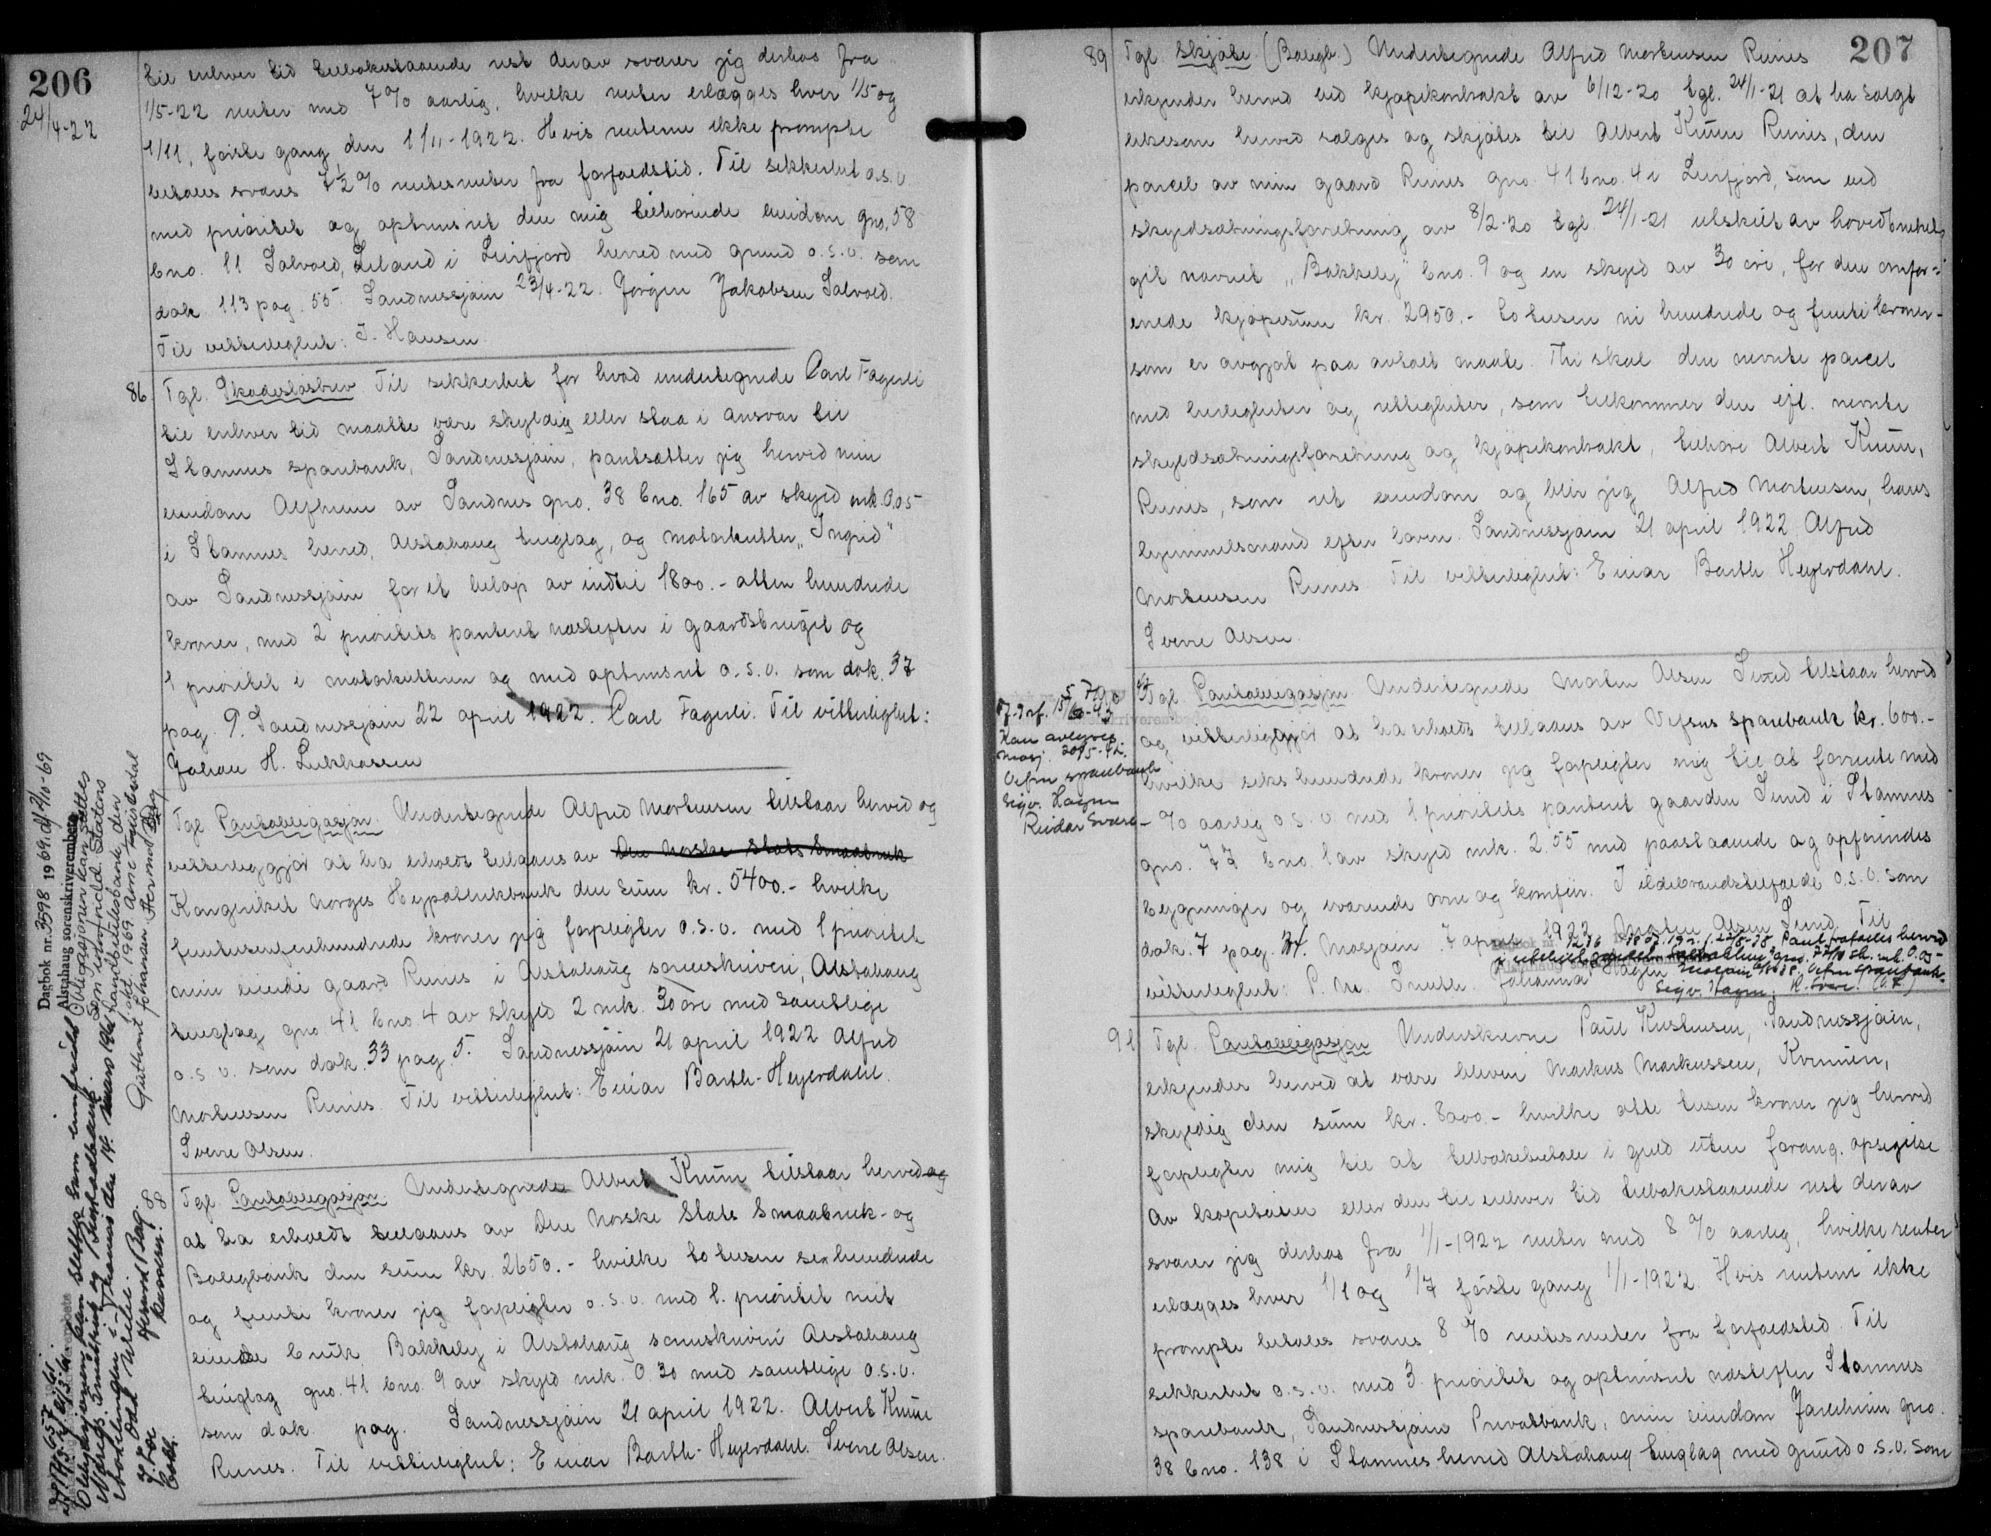 206
24/4-22
til enhver tid tilbakestaaende rest derav svarer jeg derhos fra
1/5-22 renter med 7% aarlig, hvilke renter erlægges hver 1/5 og
1/11, første gang den 1/11-1922. Hvis renterne ikke prompte
betales svares 7½% rentesrenter fra forfaldstid. Til sikkerhet o.s.v.
med prioritet og optrinsret den mig tilhørende eiendom gno. 58
bno. 11 Solvold, Leland i Leirfjord herred med grund o.s.v. som
dok. 113 pag. 55. Sandnessjøen 23/4-22. Jørgen Jakobsen Solvold.
Til vitterlighet: J. Hansen
86 Tgl. Skadesløsbrev. Til sikkerhet for hvad undertegnede Carl Fagerli
til enhver tid maatte være skyldig eller staa i ansvar til
Stamnes sparebank, Sandnessjøen, pantsætter jeg herved min
eiendom Alfheim av Sandnes gno. 38 bno. 165 av skyld mk. 0,05
i Stamnes herred, Alstahaug tinglag, og motorkutter „Ingrid"
av Sandnessjøen for et beløp av indtil 1800.- atten hundrede
kroner, med 2 prioritets panteret næstefter i gaardsbruget og
1 prioritet i motorkutteren og med optrinsret o.s.v. som dok. 37
pag. 9. Sandnessjøen 22 april 1922. Carl Fagerli. Til vitterlighet:
Johan H. Lukkassen
Tgl. Pantobligasjon. Undertegnede Alfred Mortensen tilstaar herved og
vitterliggjør at ha erholdt tillaans av Den Norske Stats Smaabruk
Kongeriket Norges Hypotekbank den sum kr. 5400.- hvilke
femtusenfirehundrede kroner jeg forpligter o.s.v. med 1 prioritet
min eiende gaard Reines i Alstahaug sorenskriveri, Alstahaug
tinglag gno 41 bno. 4 av skyld 2 mk. 30 øre med samtlige
o.s.v. som dok. 33 pag 5. Sandnessjøen 21 april 1922 Alfred
Mortensen Reines. Til vitterlighet: Einar Barth-Heyerdahl.
Sverre Olsen.
88 Tgl. Pantobligasjon Undertegnede Albert Knutn tilstaar herved og
at ha erholdt tillaans av Den Norske Stats Smaabruk- og
Boligbank den sum kr. 2650.- hvilke to tusen sex hundrede
og femti kroner jeg forpligter o.s.v. med 1. prioritet mit
eiende bruk Bakkely i Alstahaug sorenskriveri Alstahaug
tinglag gno. 41 bno. 9 av skyld mk. 0 30 med samtlige o.s.v.
som dok. pag. Sandnessjøen 21 april 1922. Albert Knutn
Reines. Til vitterlighet: Einar Barth-Heyerdahl. Sverre Olsen.
Dagbok nr. 3598 1969
Alstahaug sorenskriverembete
207
89 Tgl. Skjøte (Boligb.) Undertegnede Alfred Mortensen Reines
erkjender herved ved kjøpekontrakt av 6/12-20 tgl. 24/1-21 at ha solgt
likesom herved sælges og skjøtes til Albert Knutn Reines, den
parcel av min gaard Reines gno. 41 bno. 4 i Leirfjord, som ved
skyldsætningsforretning av 8/2-20 tgl. 24/1-21 utskilt av hovedbruket
git navnet „Bakkely" bno. 9 og en skyld av 30 øre, for den omfor-
enede kjøpesum kr. 2950.- to tusen ni hundrede og femti kroner-
som er avgjort paa avtalt maate. Thi skal den nevnte parcel
med herligheter og rettigheter, som tilkommer den ifl. nevnte
skyldsætningsforretning og kjøpekontrakt, tilhøre Albert Knutn,
Reines, som ret eiendom og blir jeg Alfred Mortensen, hans
hjemmelsmand efter loven. Sandnessjøen 21 april 1922 Alfred
Mortensen Reines Til vitterlighet: Einar Barth Heyerdahl.
Sverre Olsen.
Tgl. Pantobligasjon Undertegnede Morten Olsen Sund tilstaar herved
og vitterliggjør at ha erholdt tillaans av Vefsns sparebank kr. 600.-
hvilke seks hundrede kroner jeg forpligter mig til at forrente med
- % aarlig o.s.v. med 1 prioritets panteret gaarden Sund i Stamnes
gno. 77 bno. 1 av skyld mk. 2.55 med paastaaende og opførendes
bygninger og værende ovne og komfur. I ildebrandstilfælde o.s.v. som
dok. 7 pag. 34. Mosjøen 7 april 1922 Morten Olsen Sund. Til
vitterlighet: P. M. Johanna Hagen
Kan avlyses
Mosj. 20/5-42.
Vefsn sparebank
Sigv. Hagen
Reidar Svare
91 Tgl. Pantobligasjon Underskrevne Paul Kristensen, Sandnessjøen,
erkjender herved at være bleven Markus Markussen, Kvernen,
skyldig den sum kr. 8000.- hvilke otte tusen kroner jeg herved
forpligter mig til at tilbakebetale i guld uten forang. opsigelse
Av kapitalen eller den til enhver tid tilbakestaaende rest derav
svarer jeg derhos fra 1/1-1922 renter med 8 % aarlig, hvilke renter
erlægges hver 1/1 og 1/7 første gang 1/1-1922. Hvis renterne ikke
prompte betales svares 8 % rentesrenter fra forfaldstid. Til
sikkerhet o.s.v. med 3. prioritet og optrinsret næstefter Stamnes
sparebank, Sandnessjøen Privatbank, min eiendom gno.
38 bno. 138 i Stamnes herred Alstahaug tinglag med grund o.s.v. som